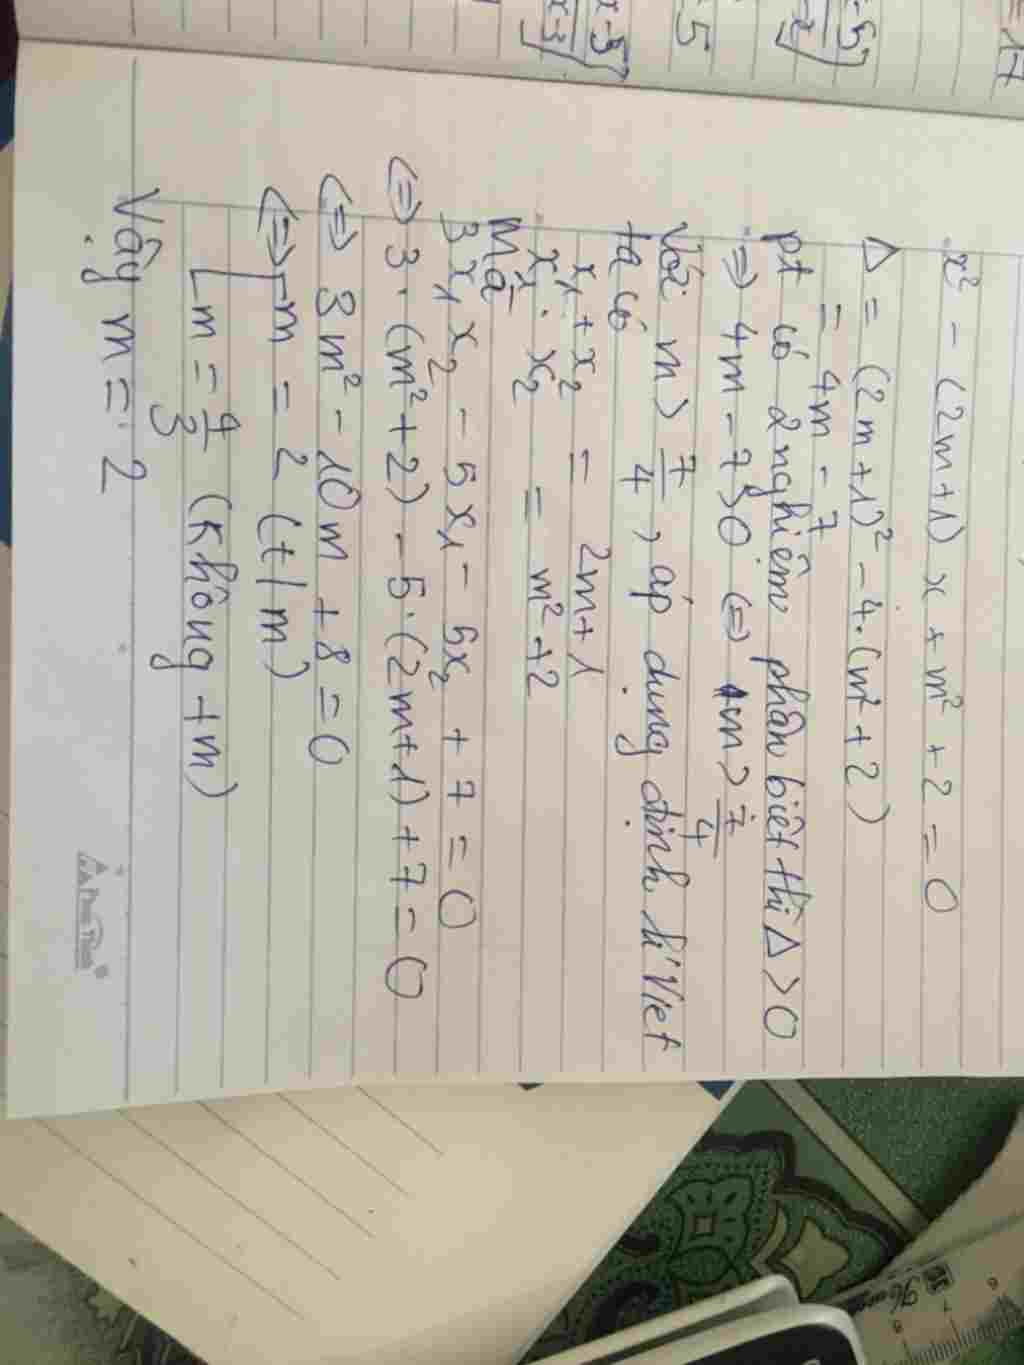 x² - (2m+1) x + m² + 2 = 0
Δ = (2m+1)² - 4.(m²+2)
= 4m - 7
pt có 2 nghiệm phân biệt thì Δ > 0
=> 4m - 7 > 0 (=) m > 7/4
Với m > 7/4, áp dụng định lí Viet
ta có
x₁ + x₂ = 2m+1
x₁ . x₂ = m² + 2
Mà
3x₁x₂ - 5x₁ - 5x₂ + 7 = 0
(=) 3.(m²+2) - 5.(2m+1) + 7 = 0
(=) 3m² - 10m + 8 = 0
(=) [ m = 2 (t/m)
[ m = 4/3 (không tm)
Vậy m = 2